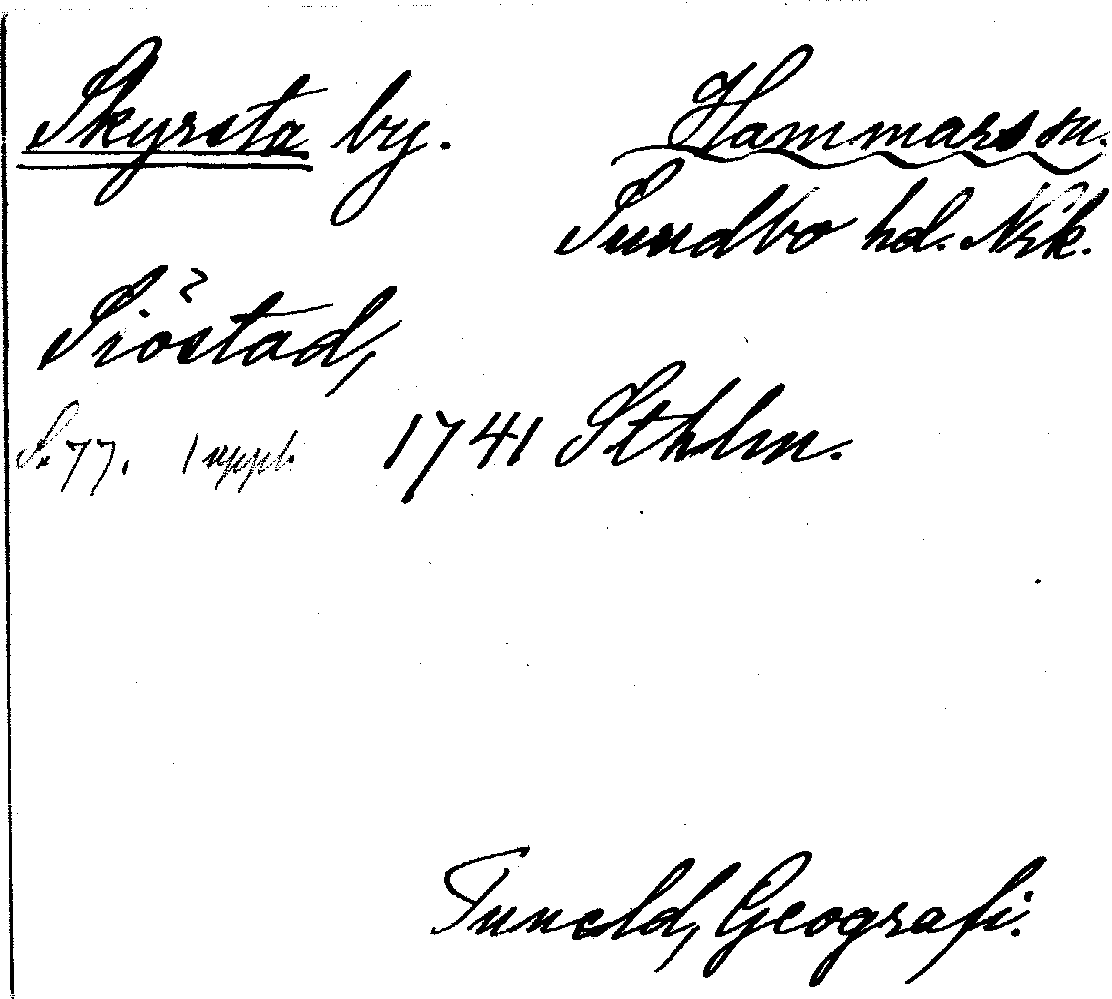 Skyrsta by. Hammars sn.
Sundbo hd. Nrk.
Siöstad,
S. 77. 1 uppl. 1741 Sthlm.
Tuneld, Geografi.